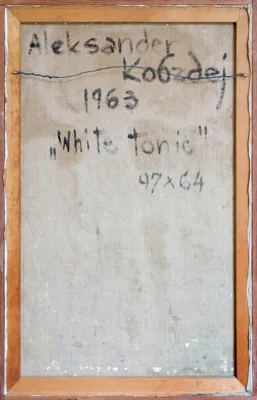 Aleksander
Kobzdej
1963
„White tonic"
97×64